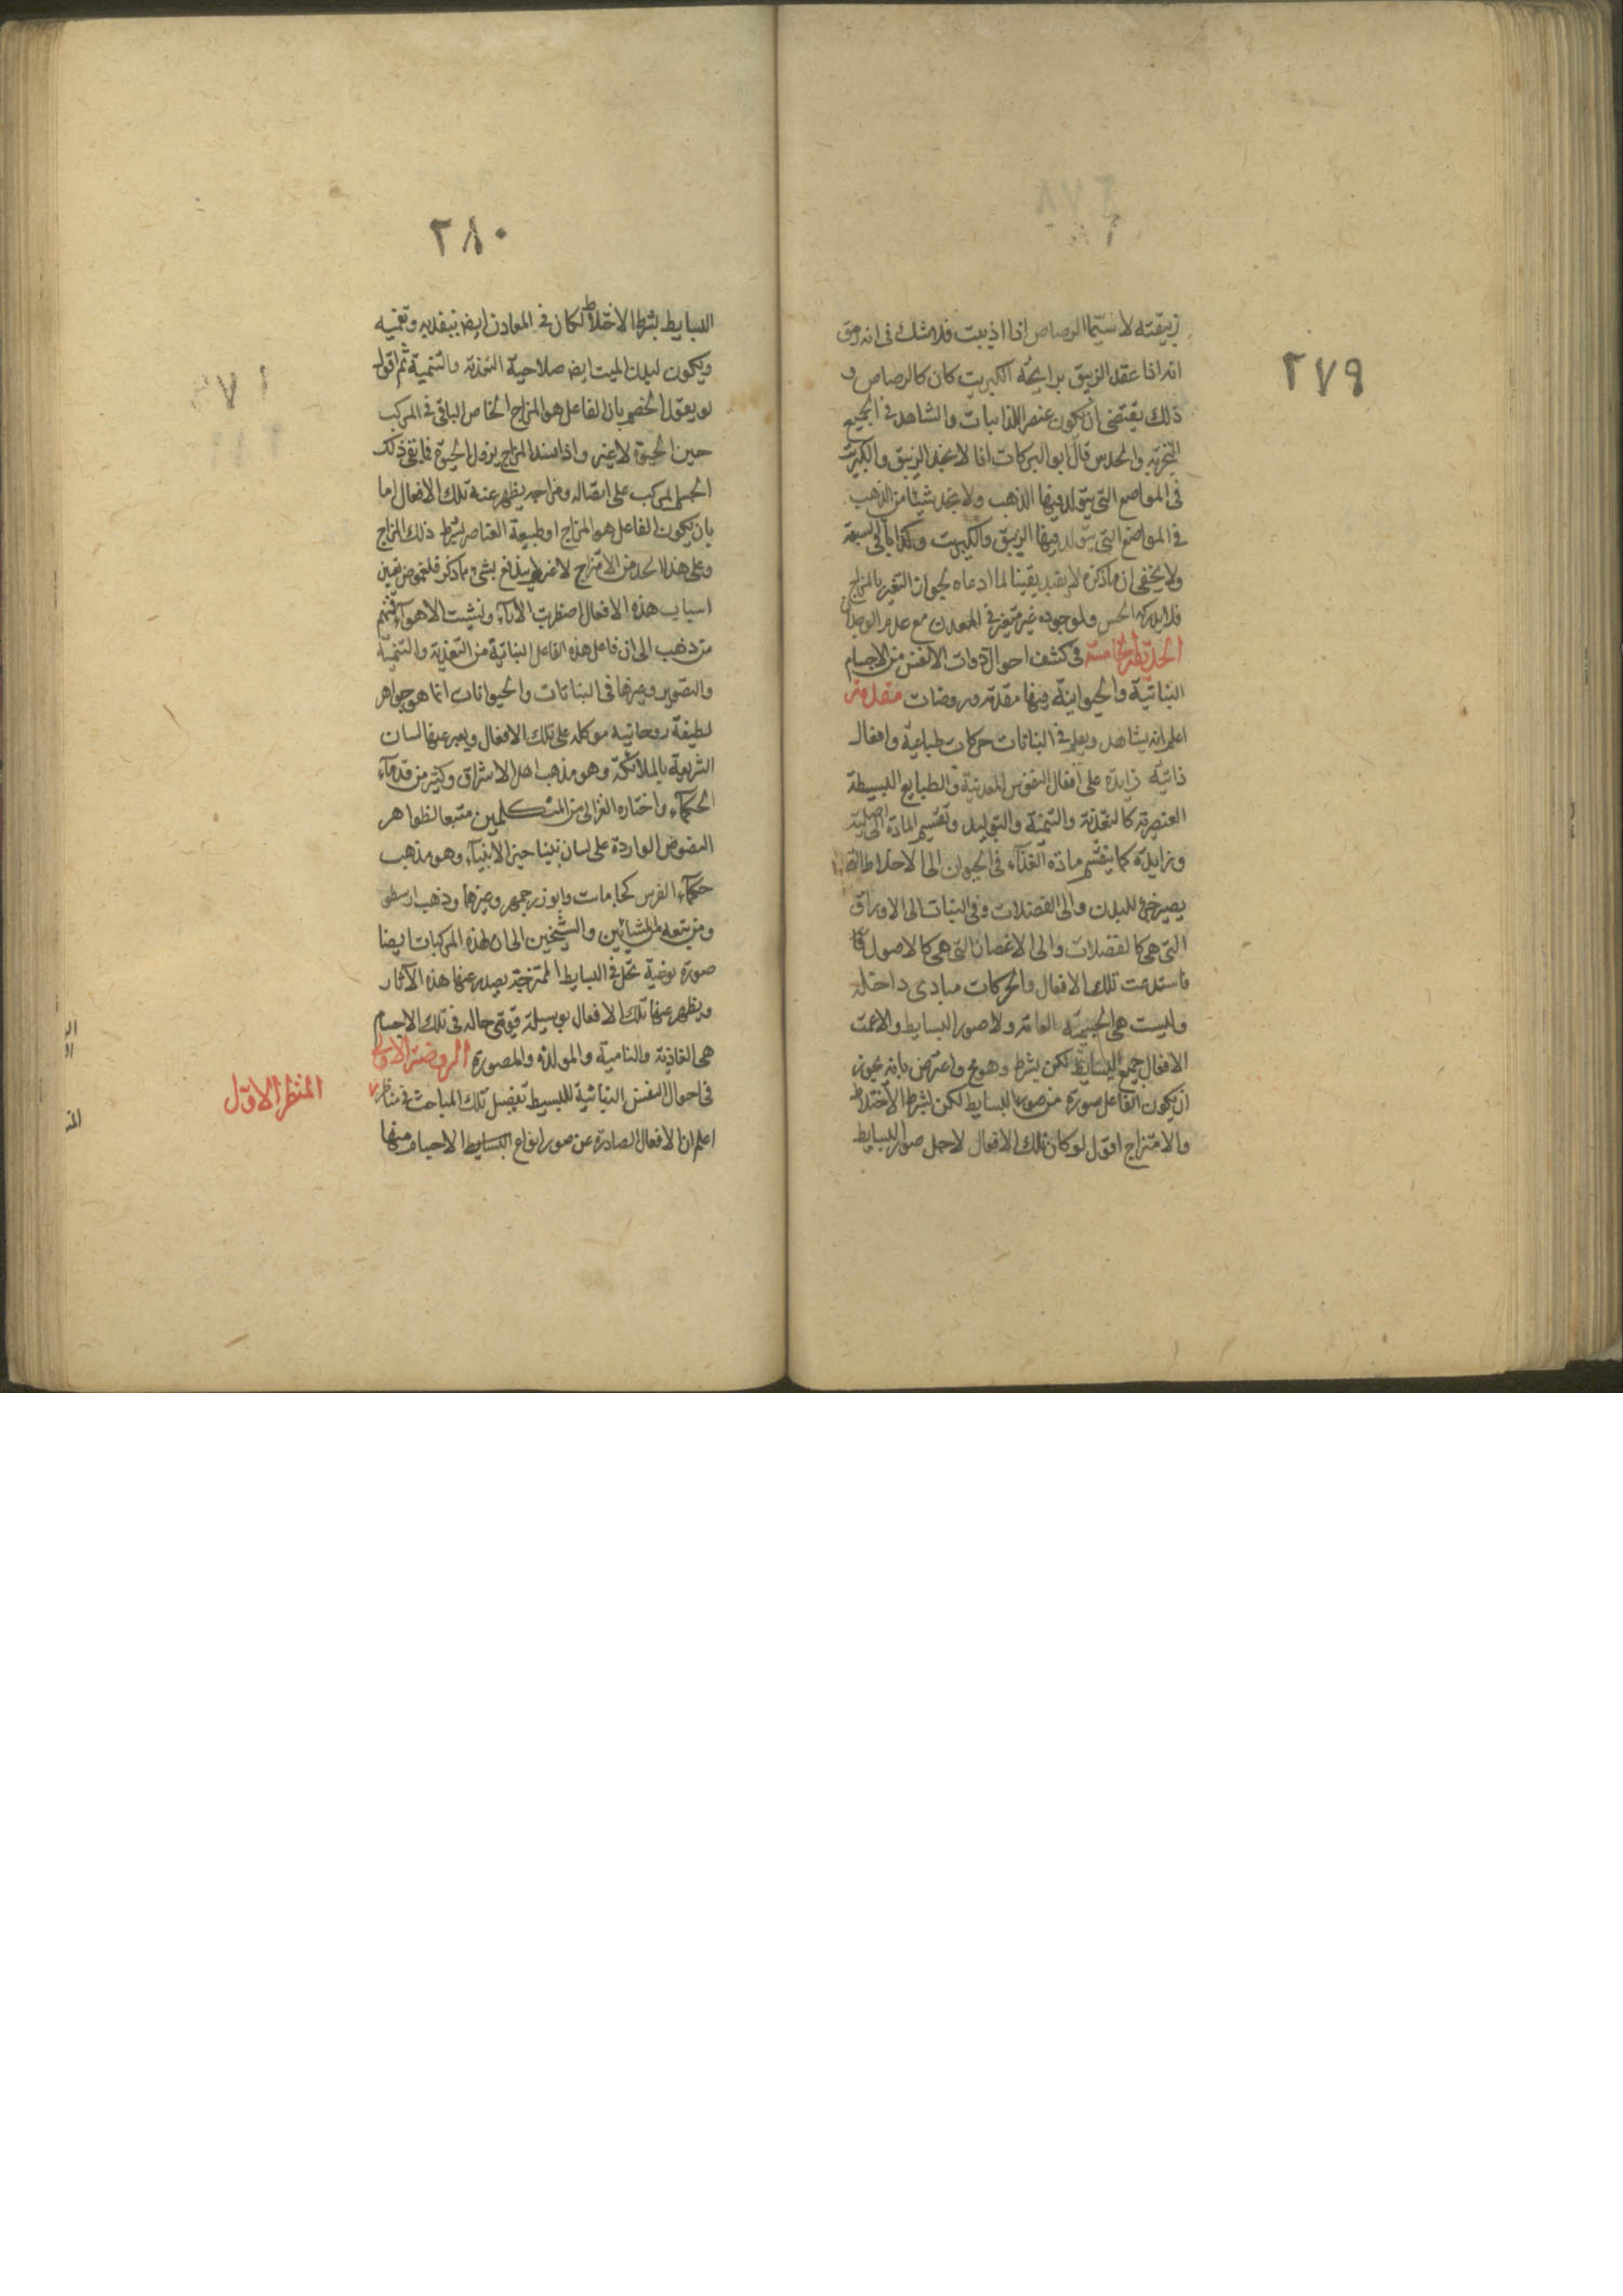 ٢٧٩
زيبقته لا سيما الرصاص اذا اذيبت فلا شك في انه زيبق
انه اذا عقد الزيبق برايحة الكبريت كان كالرصاص و
ذلك يقتضى ان يكون عنصر الذايبات والشاهد في الجميع
التجربة والحدس قال ابو البركات انا لا نجد الزيبق والكبريت
في المواضع التي يتولد فيها الذهب ولا نجد شيئا من الذهب
في المواضع التي يتولد فيها الزيبق والكبريت وكذا باقي السبعة
ولا يخفى ان ما ذكره لا يفيد يقينا لما ادعاه لجواز التغير بالمزاج
فلا يدركه الحس ولوجوده غير متميز في المعدن مع عدم الوجدان
الحديقة الخامسة في كشف احوال ذوات الانفس من الاجسام
النباتية والحيوانية وفيها مقدمة وروضات مقدمة
اعلم انه يشاهد ويعلم في النباتات حركات طباعية وافعال
ذاتية زايدة على افعال النفوس المعدنية والطبايع البسيطة
العنصرية كالتغذية والتنمية والتوليد وتقسيم المادة الى اصلية
وزايدة كما يتقسم مادة الغذاء في الحيوان الى الاخلاط التي
يصير جزء للبدن والى الفضلات وفي النبات الى الاوراق
التي هي كالفضلات والى الاغصان التي هي كالاصول
فاستدعت تلك الافعال والحركات مبادى داخلة
وليست هي الجسمية العامة ولا صور البسايط والا عمت
الافعال جميع البسايط لكن بشرط وهو مح واعترض بانه يجوز
ان يكون الفاعل صورة من صور البسايط لكن بشرط الاختلاط
والامتزاج اقول لو كان تلك الافعال لاجل صور البسايط
٢٨٠
البسايط بشرط الاختلاط لكان في المعادن ايضا تغذية وتنمية
ويكون لبدن الميت ايضا صلاحية التغذية والتنمية ثم اقول
لو يقول الخصم بان الفاعل هو المزاج الخاص الباقي في المركب
حين الحيوة لا غير واذا فسد المزاج يزول الحيوة فما بقي ذلك
الجسم المركب على اتصاله ومزاجه يظهر عنه تلك الافعال اما
بان يكون الفاعل هو المزاج او طبيعة العناصر بشرط ذلك المزاج
وعلى هذا الحد من الامتزاج لا غير لا يندفع بشيء مما ذكر فلغموض تعيين
اسباب هذه الافعال اضطربت الآراء وتشتت الاهواء فمنهم
من ذهب الى ان فاعل هذه الافاعيل النباتية من التغذية والتنمية
والتصوير وغيرها في النباتات والحيوانات انما هو جواهر
لطيفة روحانية موكلة على تلك الافعال ويعبر عنها لسان
الشريعة بالملائكة وهو مذهب اهل الاشراق وكثير من قدماء
الحكماء واختاره الغزالي من المتكلمين متبعا لظواهر
النصوص الواردة على لسان نبينا خير الانبياء وهو مذهب
حكماء الفرس كجاماست وابوزرجمهر وغيرها وذهب ارسطو
ومن تبعه من المشائين والشيخين الى ان لهذه المركبات ايضا
صورة نوعية تحل في البسايط الممتزجة يصدر عنها هذه الآثار
ويظهر عنها تلك الافعال بوسيلة قوى حالة في تلك الاجسام
هي الغاذية والنامية والمولدة والمصورة الروضة الاولى
في احوال النفس النباتية للبسيط تفصيل تلك المباحث في مناظر
المنظر الاول
اعلم ان الافعال الصادرة عن صور انواع البسايط الاجسام منها